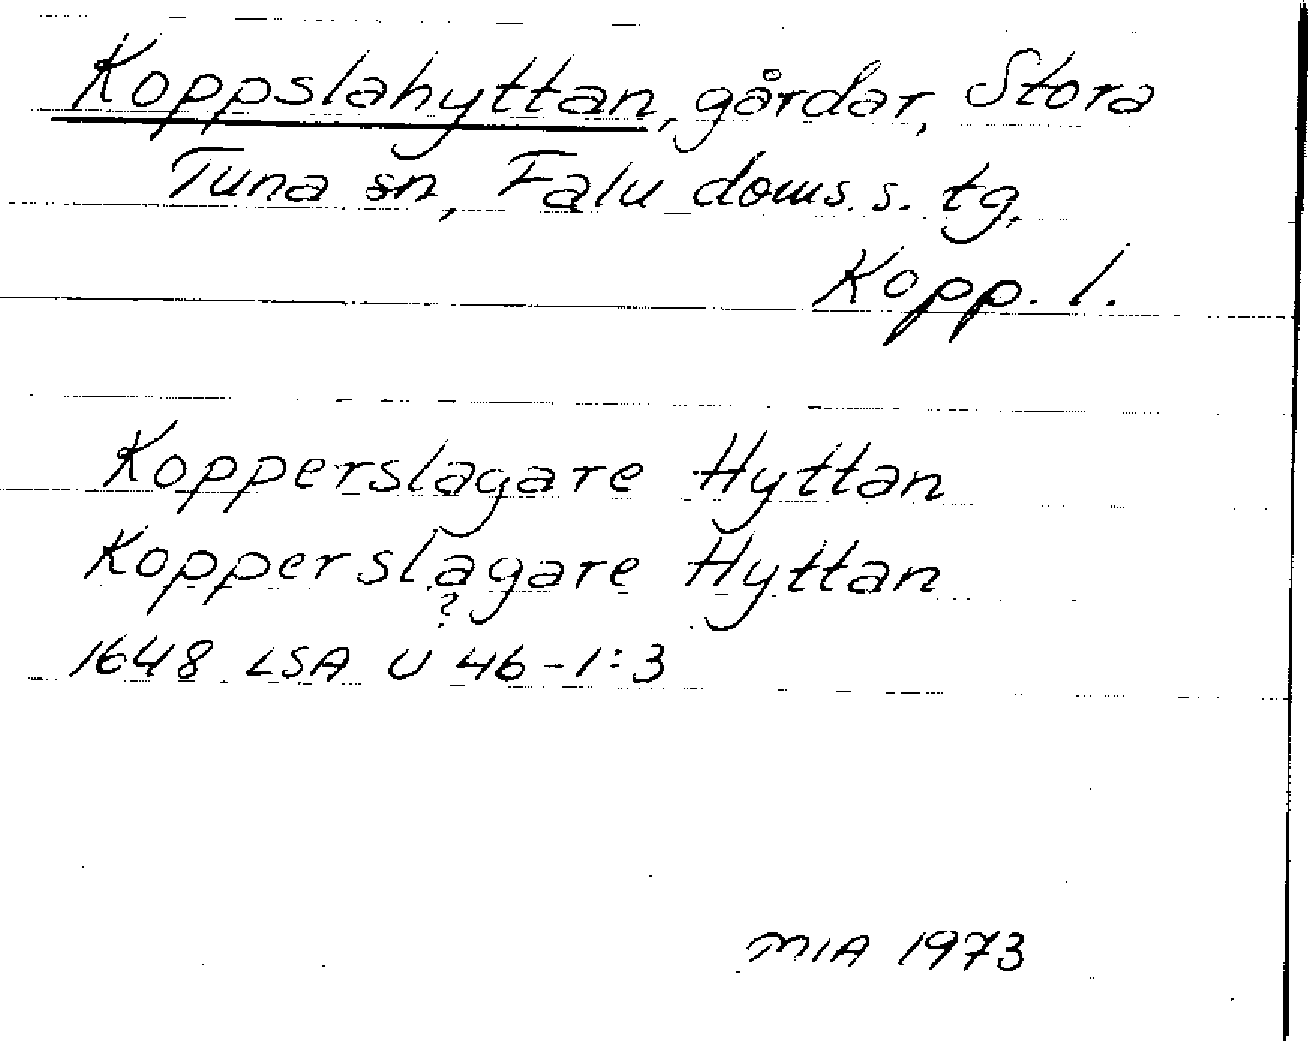 Koppslahyttan, gårdar, Stora
Tuna sn, Falu doms. s. tg,
Kopp. l.
Kopperslagare Hyttan
Kopperslagare Hyttan
?
1648 LSA U 46-1:3
MIA 1973